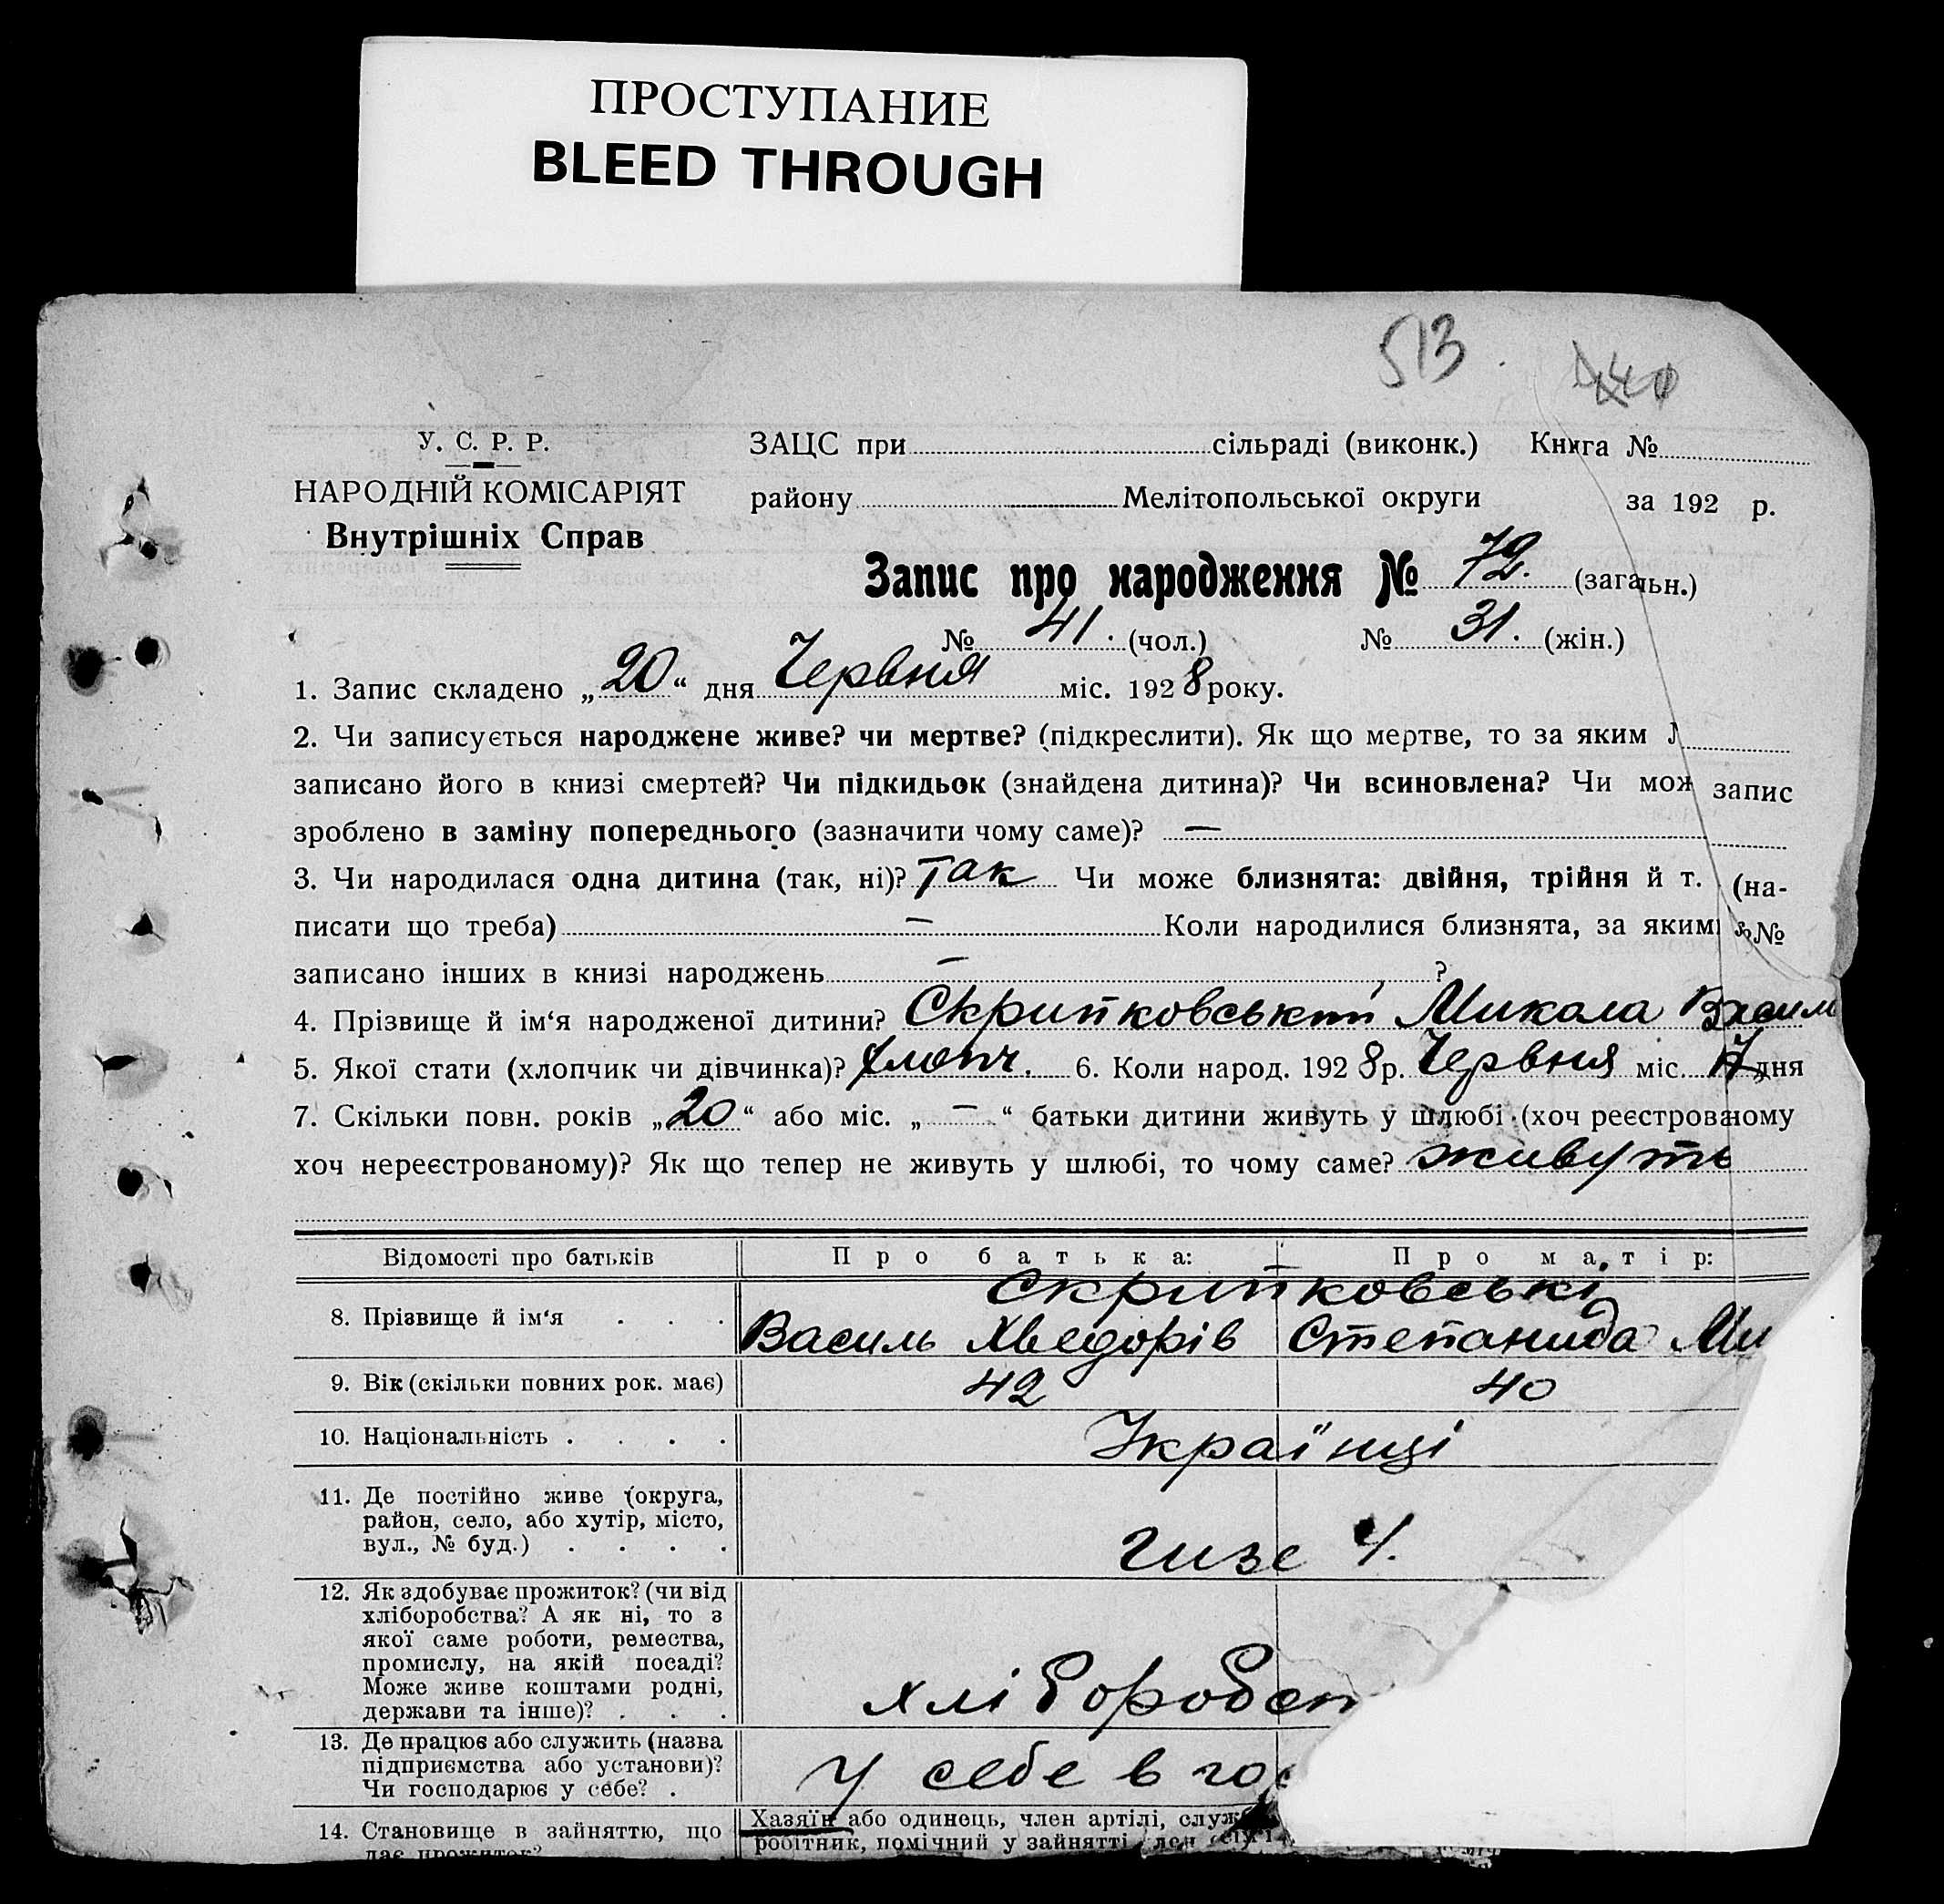 ПРОСТУПАНИЕ
BLEED THROUGH
513.
У. С. Р. Р.
НАРОДНІЙ КОМІСАРІЯТ
Внутрішніх Справ
ЗАЦС при сільраді (виконк.) Книга №
району Мелітопольської округи за 192 р.
Запис про народження № 72. (загальн.)
№ 41. (чол.) № 31. (жін.)
1. Запис складено „20“ дня Червня міс. 1928 року.
2. Чи записується народжене живе? чи мертве? (підкреслити). Як що мертве, то за яким
записано його в книзі смертей? Чи підкидьок (знайдена дитина)? Чи всиновлена? Чи мож запис
зроблено в заміну попереднього (зазначити чому саме)? —
3. Чи народилася одна дитина (так, ні)? Так Чи може близнята: двійня, трійня й т. (на-
писати що треба) — Коли народилися близнята, за яким №
записано інших в книзі народжень — ?
4. Прізвище й ім‘я народженої дитини? Скрипковський Микола Василь
5. Якої стати (хлопчик чи дівчинка)? хлопч. 6. Коли народ. 1928 р. Червня міс. 17 дня
7. Скільки повн. років „20“ або міс. „—“ батьки дитини живуть у шлюбі (хоч реєстрованому
хоч нереєстрованому)? Як що тепер не живуть у шлюбі, то чому саме? живуть
Відомості про батьків Про батька: Про матір:
Скрипковські
8. Прізвище й ім‘я . . . Василь Хведорів Степанида Ми
9. Вік (скільки повних рок. має) 42 40
10. Національність . . . . Українці
11. Де постійно живе (округа,
район, село, або хутір, місто,
вул., № буд.) . . . .
12. Як здобуває прожиток? (чи від
хліборобства? А як ні, то з
якої саме роботи, ремества,
промислу, на якій посаді?
Може живе коштами родні,
держави та інше)? . . . хлібороб​ст
13. Де працює або служить (назва
підприємства або установи)?
Чи господарює у себе? . У себе в гос
14. Становище в зайняттю, що Хазяїн або одинець, член артілі, служб
дає прожиток? робітник, помічний у зайнятті